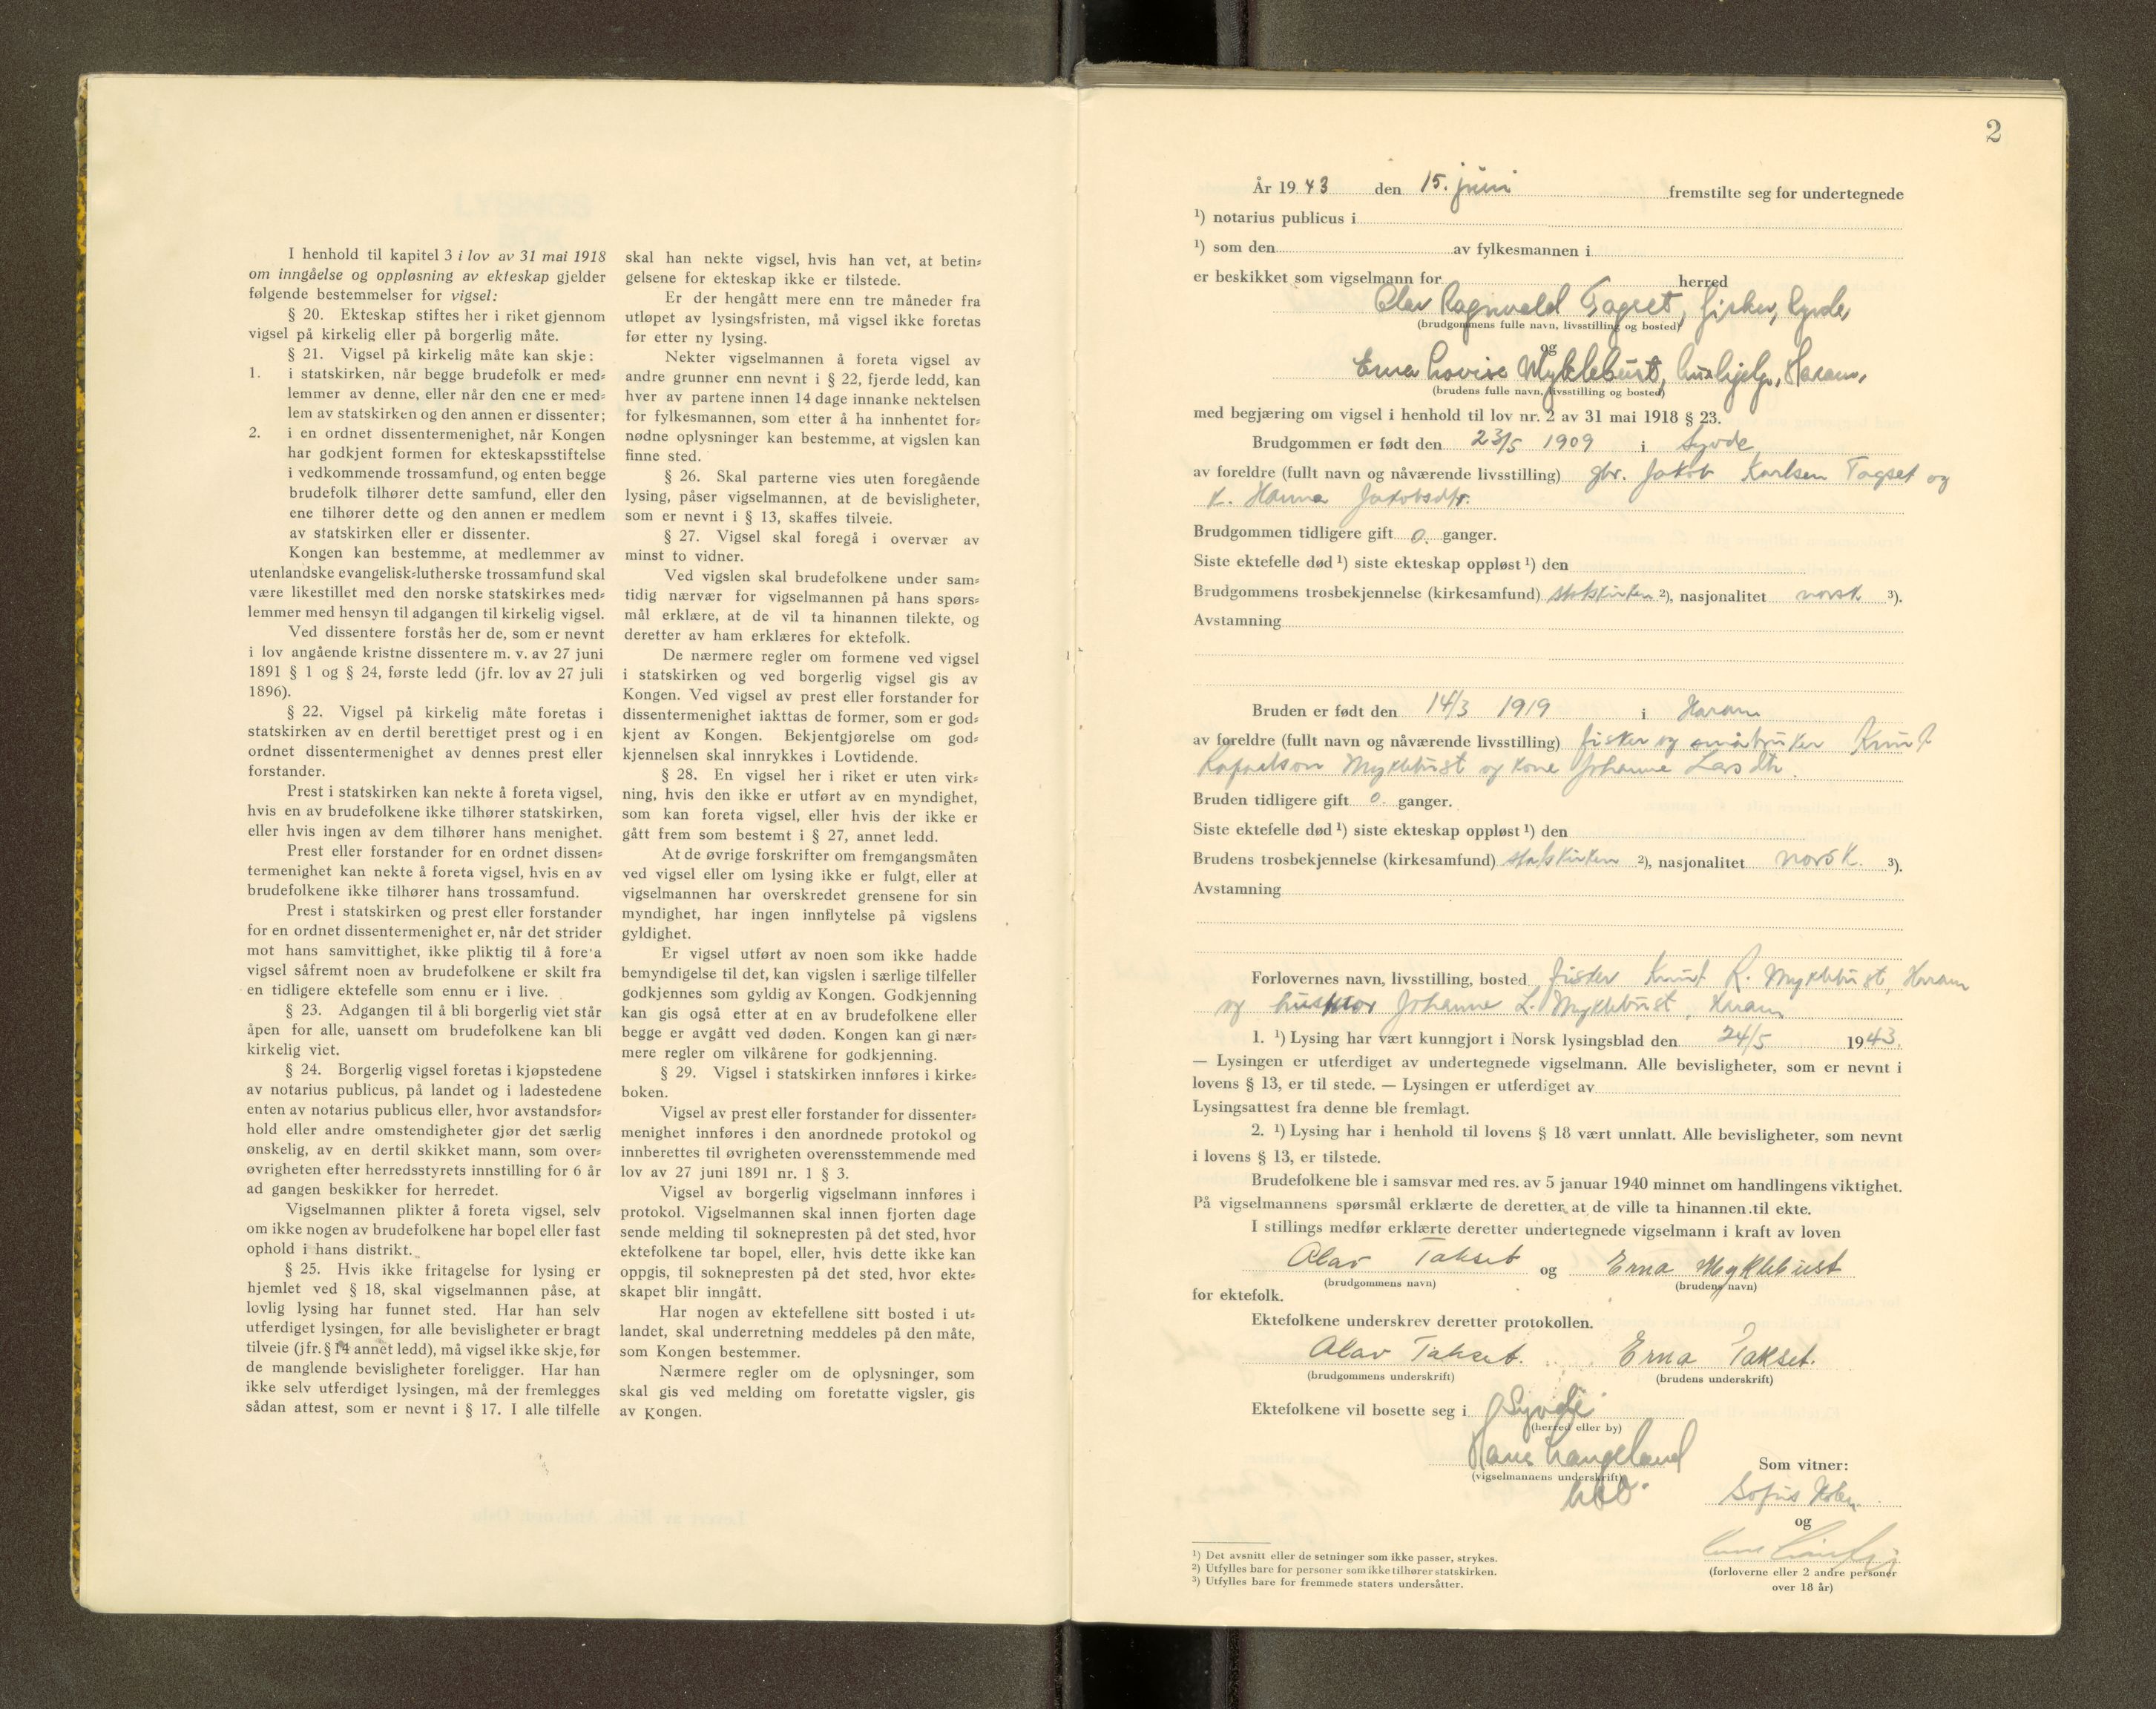 I henhold til kapitel 3 i lov av 31 mai 1918
om inngåelse og oppløsning av ekteskap gjelder
følgende bestemmelser for vigsel:
§ 20. Ekteskap stiftes her i riket gjennom
vigsel på kirkelig eller på borgerlig måte.
§ 21. Vigsel på kirkelig måte kan skje:
1. i statskirken, når begge brudefolk er med-
lemmer av denne, eller når den ene er med-
lem av statskirken og den annen er dissenter;
2. i en ordnet dissentermenighet, når Kongen
har godkjent formen for ekteskapsstiftelse
i vedkommende trossamfund, og enten begge
brudefolk tilhører dette samfund, eller den
ene tilhører dette og den annen er medlem
av statskirken eller er dissenter.
Kongen kan bestemme, at medlemmer av
utenlandske evangelisk-lutherske trossamfund skal
være likestillet med den norske statskirkes med-
lemmer med hensyn til adgangen til kirkelig vigsel.
Ved dissentere forstås her de, som er nevnt
i lov angående kristne dissentere m. v. av 27 juni
1891 § 1 og § 24, første ledd (jfr. lov av 27 juli
1896).
§ 22. Vigsel på kirkelig måte foretas i
statskirken av en dertil berettiget prest og i en
ordnet dissentermenighet av dennes prest eller
forstander.
Prest i statskirken kan nekte å foreta vigsel,
hvis en av brudefolkene ikke tilhører statskirken,
eller hvis ingen av dem tilhører hans menighet.
Prest eller forstander for en ordnet dissen-
termenighet kan nekte å foreta vigsel, hvis en av
brudefolkene ikke tilhører hans trossamfund.
Prest i statskirken og prest eller forstander
for en ordnet dissentermenighet er, når det strider
mot hans samvittighet, ikke pliktig til å fore'a
vigsel såfremt noen av brudefolkene er skilt fra
en tidligere ektefelle som ennu er i live.
§ 23. Adgangen til å bli borgerlig viet står
åpen for alle, uansett om brudefolkene kan bli
kirkelig viet.
§ 24. Borgerlig vigsel foretas i kjøpstedene
av notarius publicus, på landet og i ladestedene
enten av notarius publicus eller, hvor avstandsfor-
hold eller andre omstendigheter gjør det særlig
ønskelig, av en dertil skikket mann, som over-
øvrigheten efter herredsstyrets innstilling for 6 år
ad gangen beskikker for herredet.
Vigselmannen plikter å foreta vigsel, selv
om ikke nogen av brudefolkene har bopel eller fast
ophold i hans distrikt.
§ 25. Hvis ikke fritagelse for lysing er
hjemlet ved § 18, skal vigselmannen påse, at
lovlig lysing har funnet sted. Har han selv
utferdiget lysingen, før alle bevisligheter er bragt
tilveie (jfr. § 14 annet ledd), må vigsel ikke skje, før
de manglende bevisligheter foreligger. Har han
ikke selv utferdiget lysingen, må der fremlegges
sådan attest, som er nevnt i § 17. I alle tilfelle
skal han nekte vigsel, hvis han vet, at betin-
gelsene for ekteskap ikke er tilstede.
Er der hengått mere enn tre måneder fra
utløpet av lysingsfristen, må vigsel ikke foretas
før etter ny lysing.
Nekter vigselmannen å foreta vigsel av
andre grunner enn nevnt i § 22, fjerde ledd, kan
hver av partene innen 14 dage innanke nektelsen
for fylkesmannen, som etter å ha innhentet for-
nødne oplysninger kan bestemme, at vigslen kan
finne sted.
§ 26. Skal parterne vies uten foregående
lysing, påser vigselmannen, at de bevisligheter,
som er nevnt i § 13, skaffes tilveie.
§ 27. Vigsel skal foregå i overvær av
minst to vidner.
Ved vigslen skal brudefolkene under sam-
tidig nærvær for vigselmannen på hans spørs-
mål erklære, at de vil ta hinannen tilekte, og
deretter av ham erklæres for ektefolk.
De nærmere regler om formene ved vigsel
i statskirken og ved borgerlig vigsel gis av
Kongen. Ved vigsel av prest eller forstander for
dissentermenighet iakttas de former, som er god-
kjent av Kongen. Bekjentgjørelse om god-
kjennelsen skal innrykkes i Lovtidende.
§ 28. En vigsel her i riket er uten virk-
ning, hvis den ikke er utført av en myndighet,
som kan foreta vigsel, eller hvis der ikke er
gått frem som bestemt i § 27, annet ledd.
At de øvrige forskrifter om fremgangsmåten
ved vigsel eller om lysing ikke er fulgt, eller at
vigselmannen har overskredet grensene for sin
myndighet, har ingen innflytelse på vigslens
gyldighet.
Er vigsel utført av noen som ikke hadde
bemyndigelse til det, kan vigslen i særlige tilfeller
godkjennes som gyldig av Kongen. Godkjenning
kan gis også etter at en av brudefolkene eller
begge er avgått ved døden. Kongen kan gi nær-
mere regler om vilkårene for godkjenning.
§ 29. Vigsel i statskirken innføres i kirke-
boken.
Vigsel av prest eller forstander for dissenter-
menighet innføres i den anordnede protokol og
innberettes til øvrigheten overensstemmende med
lov av 27 juni 1891 nr. 1 § 3.
Vigsel av borgerlig vigselmann innføres i
protokol. Vigselmannen skal innen fjorten dage
sende melding til soknepresten på det sted, hvor
ektefolkene tar bopel, eller, hvis dette ikke kan
oppgis, til soknepresten på det sted, hvor ekte-
skapet blir inngått.
Har nogen av ektefellene sitt bosted i ut-
landet, skal underretning meddeles på den måte,
som Kongen bestemmer.
Nærmere regler om de oplysninger, som
skal gis ved melding om foretatte vigsler, gis
av Kongen.
2
År 1943 den 15. juni fremstilte seg for undertegnede
1) notarius publicus i
1) som den av fylkesmannen i
er beskikket som vigselmann for herred
Olav Ragnvald Tagset, fisker, Syvde,
(brudgommens fulle navn, livsstilling og bosted)
og
Erna Lovise Myklebust, hushjelp, Haram,
(brudens fulle navn, livsstilling og bosted)
med begjæring om vigsel i henhold til lov nr. 2 av 31 mai 1918 § 23.
Brudgommen er født den 23/5 1909 i Syvde
av foreldre (fullt navn og nåværende livsstilling) gbr. Jakob Karlsen Tagset og
k. Hanna Jakobsdtr.
Brudgommen tidligere gift 0. ganger.
Siste ektefelle død 1) siste ekteskap oppløst 1) den
Brudgommens trosbekjennelse (kirkesamfund) statskirken 2), nasjonalitet norsk 3).
Avstamning
Bruden er født den 14/3 1919 i Haram
av foreldre (fullt navn og nåværende livsstilling) fisker og småbruker Knut
Rafaelson Myklebust og kone Johanne Larsdtr.
Bruden tidligere gift 0. ganger.
Siste ektefelle død 1) siste ekteskap oppløst 1) den
Brudens trosbekjennelse (kirkesamfund) statskirken 2), nasjonalitet norsk. 3).
Avstamning
Forlovernes navn, livsstilling, bosted fisker Knut R. Myklebust, Haram
og husmor Johanne L. Myklebust, Haram
1. 1) Lysing har vært kunngjort i Norsk lysingsblad den 24/5 1943.
— Lysingen er utferdiget av undertegnede vigselmann. Alle bevisligheter, som er nevnt i
lovens § 13, er til stede. — Lysingen er utferdiget av
Lysingsattest fra denne ble fremlagt.
2. 1) Lysing har i henhold til lovens § 18 vært unnlatt. Alle bevisligheter, som nevnt
i lovens § 13, er tilstede.
Brudefolkene ble i samsvar med res. av 5 januar 1940 minnet om handlingens viktighet.
På vigselmannens spørsmål erklærte de deretter at de ville ta hinannen til ekte.
I stillings medfør erklærte deretter undertegnede vigselmann i kraft av loven
Olav Takset og Erna Myklebust
(brudgommens navn) (brudens navn)
for ektefolk.
Ektefolkene underskrev deretter protokollen.
Olav Takset. Erna Takset.
(brudgommens underskrift) (brudens underskrift)
Ektefolkene vil bosette seg i Syvde
(herred eller by)
Hans Langeland
(vigselmannens underskrift)
Som vitner:
Sofus
og
(forloverne eller 2 andre personer
over 18 år)
1) Det avsnitt eller de setninger som ikke passer, strykes.
2) Utfylles bare for personer som ikke tilhører statskirken.
3) Utfylles bare for fremmede staters undersåtter.